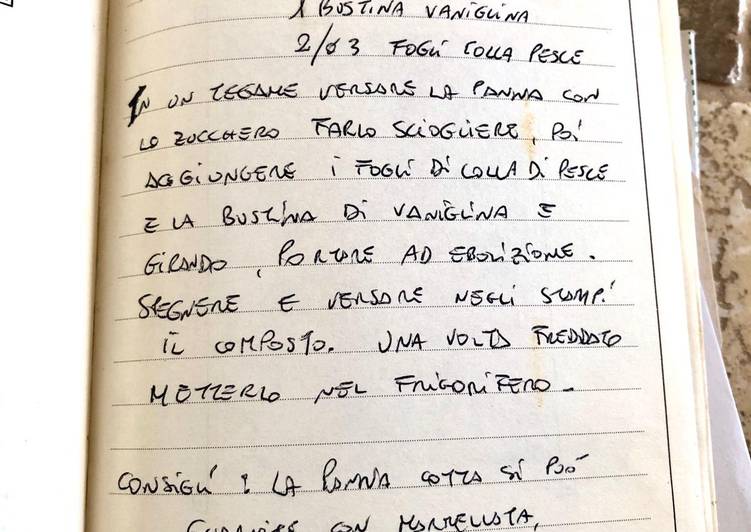 1 BUSTINA VANIGLINA
2/o 3 FOGLI COLLA PESCE
IN UN TEGAME VERSARE LA PANNA CON
LO ZUCCHERO FARLO SCIOGLIERE, POI
AGGIUNGERE I FOGLI DI COLLA DI PESCE
E LA BUSTINA DI VANIGLINA E
GIRANDO, PORTARE AD EBOLIZIONE.
SPEGNERE E VERSARE NEGLI STAMPI
IL COMPOSTO. UNA VOLTA FREDDATO
METTERLO NEL FRIGORIFERO -
CONSIGLI : LA PANNA COTTA SI PUÒ
GUARNIRE CON MARMELLATA,